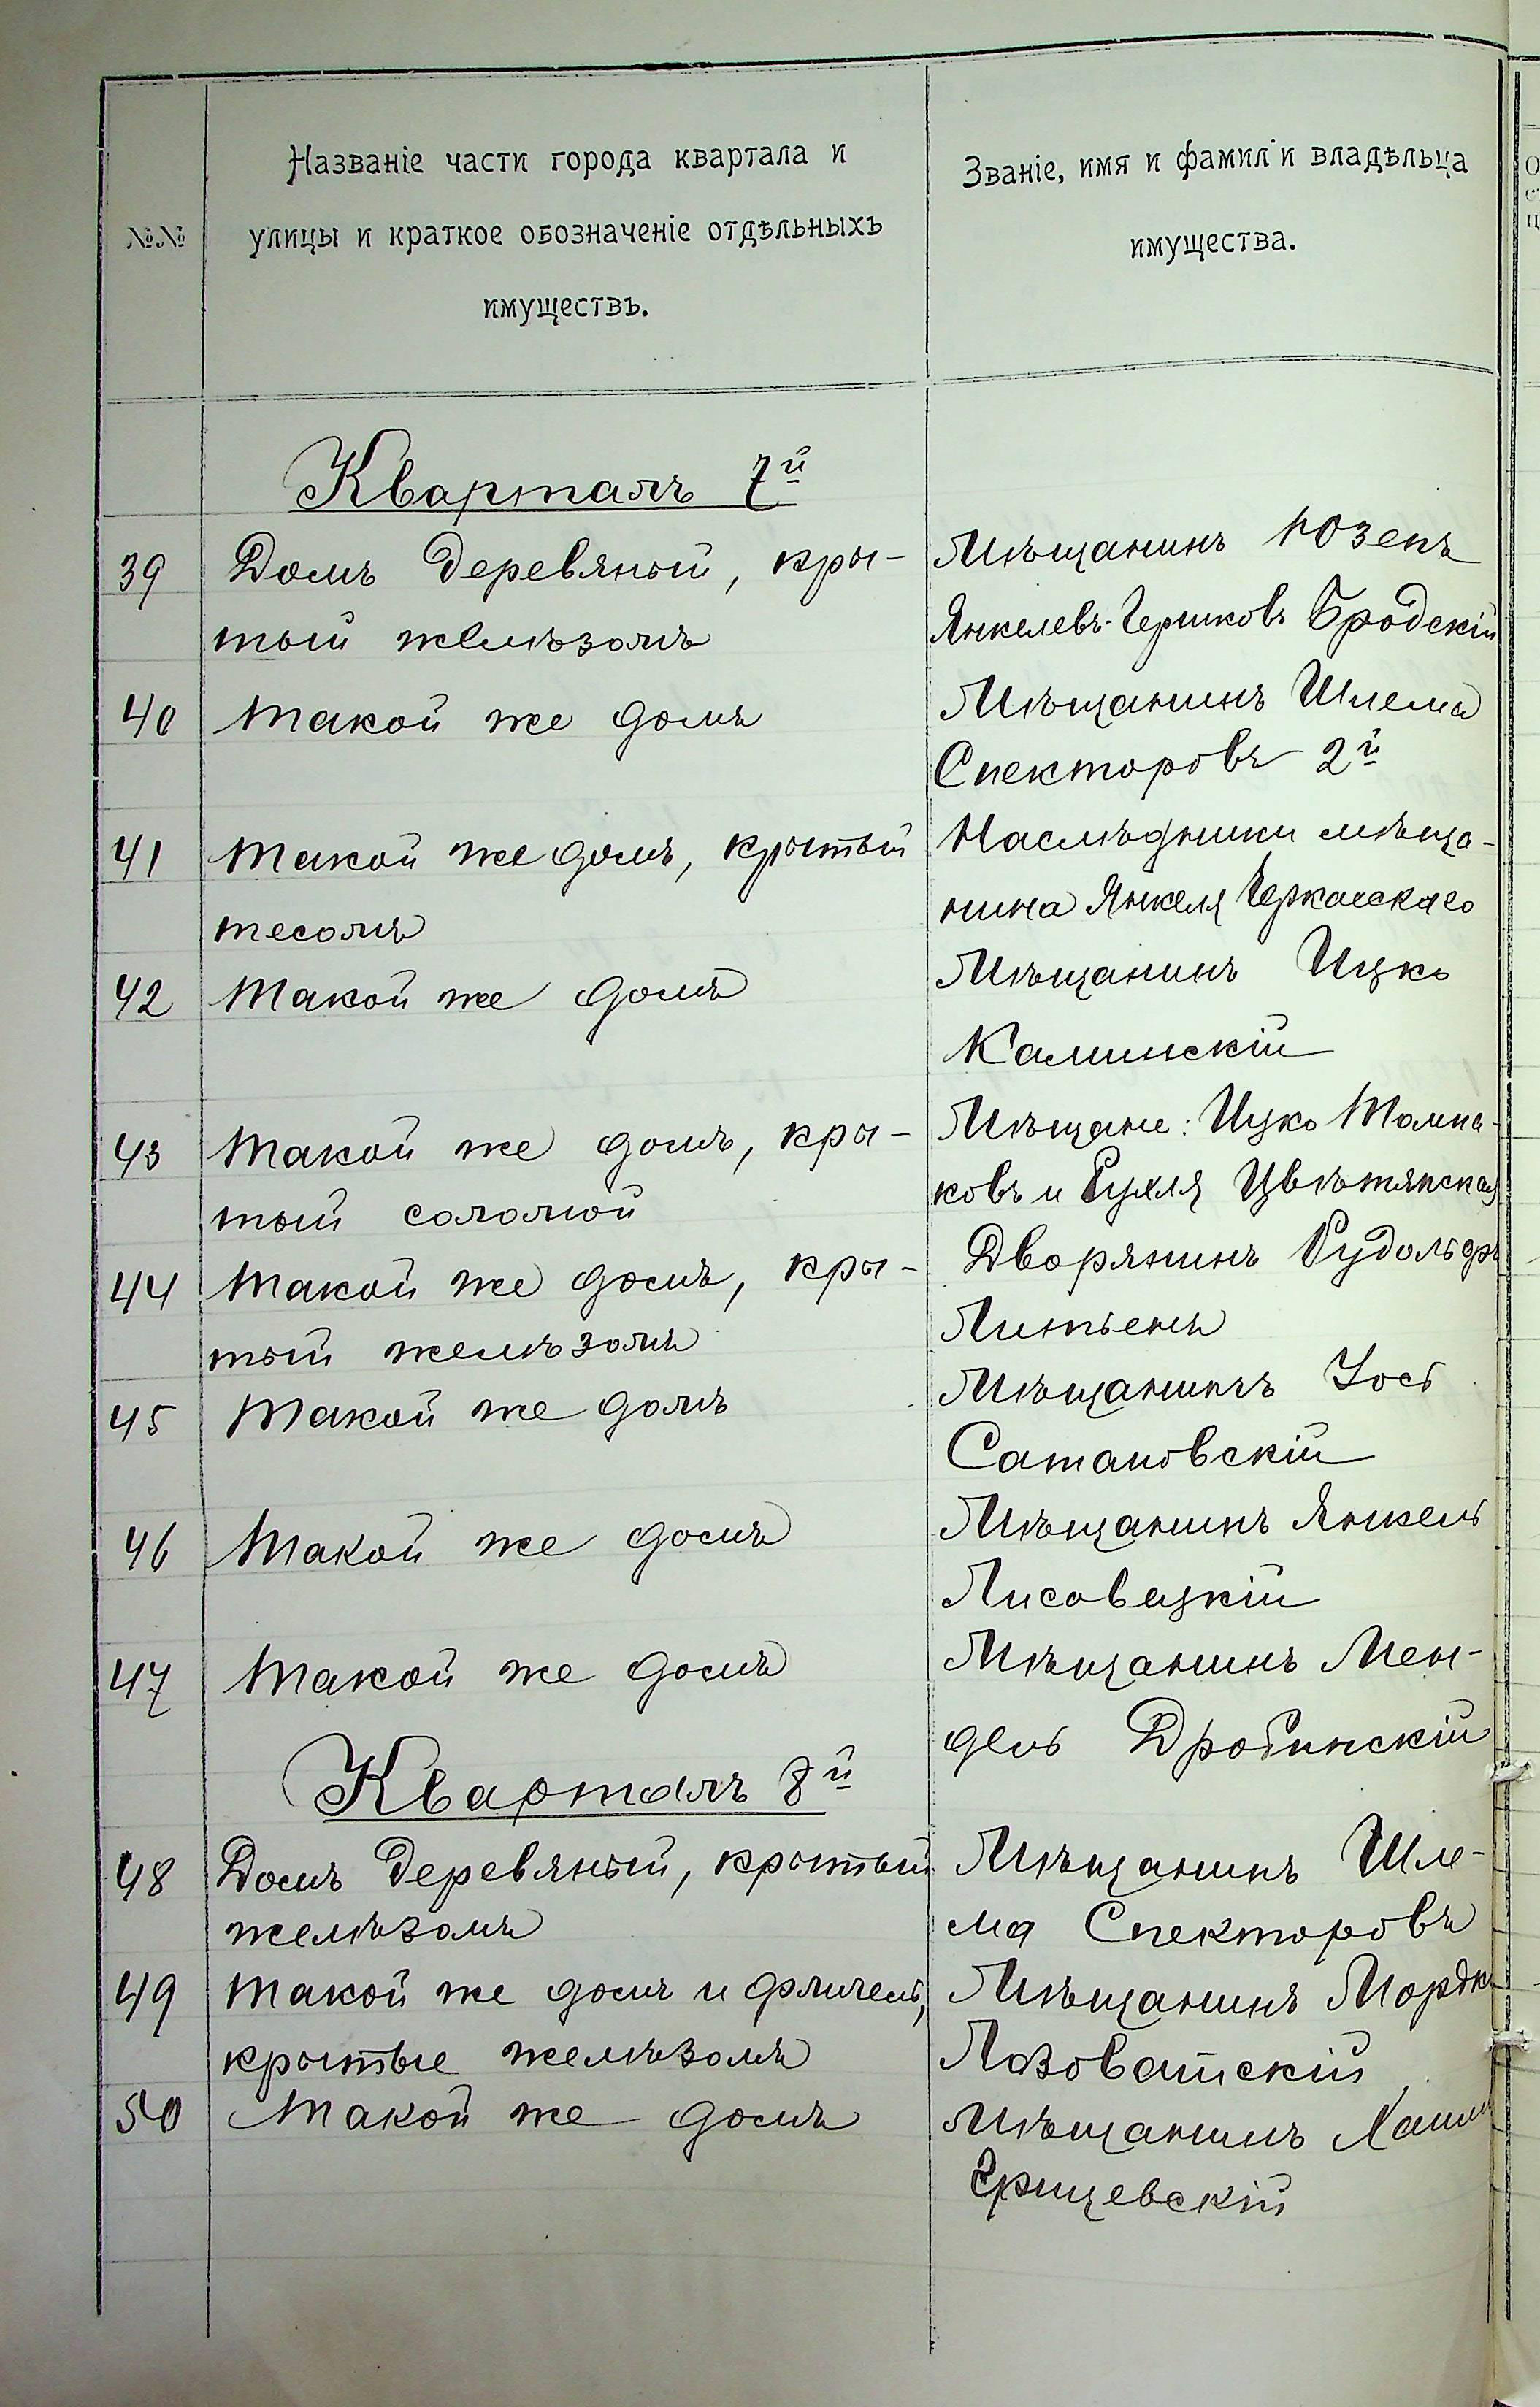 №№
Названіе части города квартала и
улицы и краткое обозначеніе отдѣльныхъ
имуществъ.
Званіе, имя и фамиліи владѣльца
имущества.
Кварталъ 7й
39 Домъ деревяный, кры-
тый желѣзомъ
Мѣщанинъ Юзепъ
Янкелевъ-Гершковъ Бродскій
40 Такой же домъ
Мѣщанинъ Шлема
Спекторовъ 2й
41 Такой же домъ, крытый
тесомъ
Наслѣдники мѣща-
нина Янкеля Черкасскаго
42 Такой же домъ
Мѣщанинъ Ицко
Калинскій
43 Такой же домъ, кры-
тый соломой
Мѣщане: Ицко Толма-
ковъ и Рухля
44 Такой же домъ, кры-
тый желѣзомъ
Дворянинъ Рудольфъ
45 Такой же домъ
Мѣщанинъ Іось
Сатановскій
46 Такой же домъ
Мѣщанинъ Янкель
Лисовецкій
47 Такой же домъ
Мѣщанинъ Мен-
дель Дробинскій
Кварталъ 8й
48 Домъ деревяный, крытый
желѣзомъ
Мѣщанинъ Шле-
ма Спекторовъ
49 Такой же домъ и флигель,
крытые желѣзомъ
Мѣщанинъ Мордко
Лозоватскій
50 Такой же домъ
Мѣщанинъ
Грищевскій